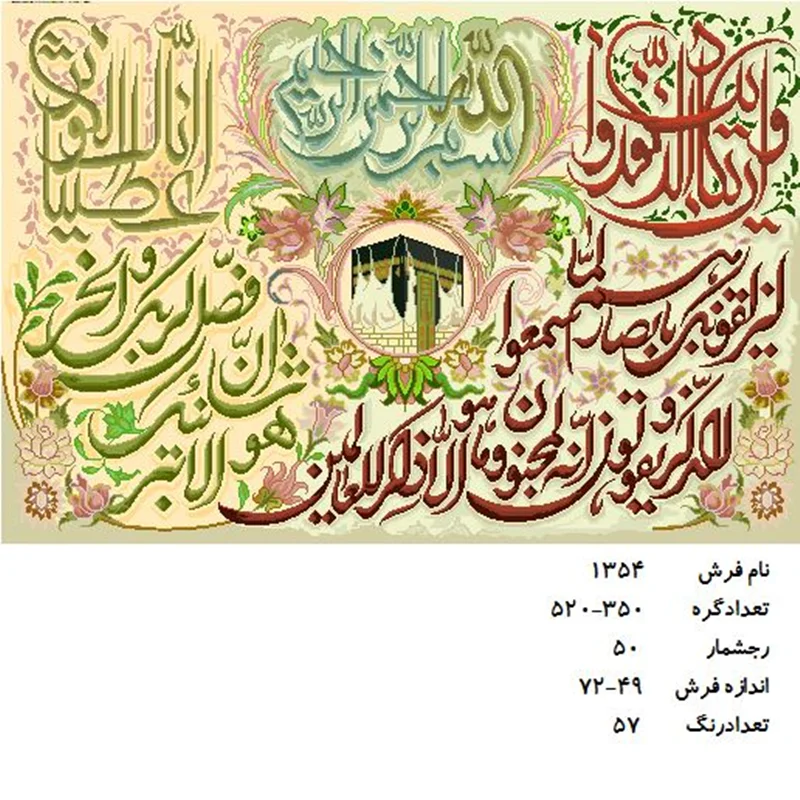 بسم الله الرحمن الرحیم
وان یکاد الذین کفروا
لیزلقونک بابصارهم لما سمعوا
الذکر و یقولون انه لمجنون
وما هو الا ذکر للعالمین
انا اعطیناک الکوثر
فصل لربک وانحر
ان شانئک
هو الابتر
نام فرش ۱۳۵۴
تعدادگره ۳۵۰-۵۲۰
رجشمار ۵۰
اندازه فرش ۴۹-۷۲
تعدادرنگ ۵۷